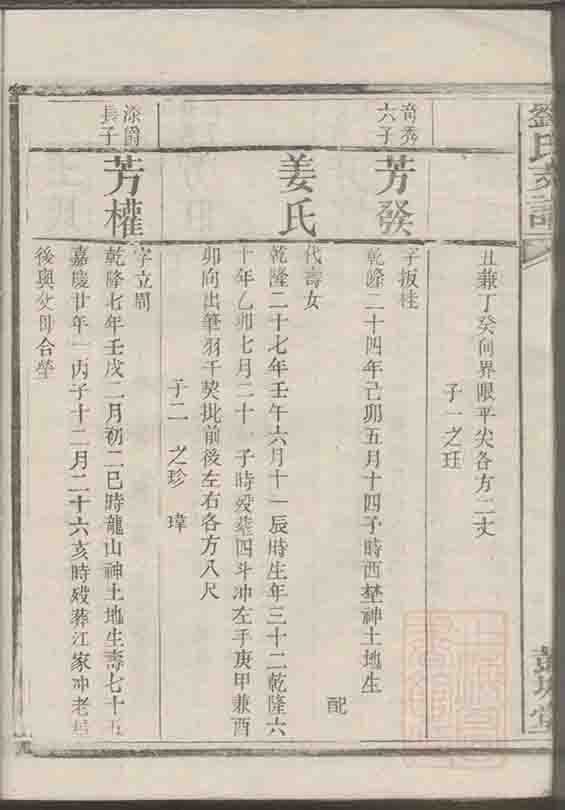 劉氏支譜
彭城堂
丑兼丁癸向界限平尖各方二丈
子一之玨
奇秀
六子
芳發
字扳桂
乾隆二十四年己卯五月十四子時西塋神土地生
配
姜氏
代壽女
乾隆二十七年壬午六月十一辰時生年三十二乾隆六
十年乙卯七月二十 子時歿葬四斗冲左手庚甲兼酉
卯向出筆羽千契批前後左右各方八尺
子二 之珍 瑋
添爵
長子
芳權
字立周
乾隆七年壬戌二月初二巳時龍山神土地生壽七十五
嘉慶廿年一丙子十二月二十六亥時歿葬江家冲老屋
後與父母合塋